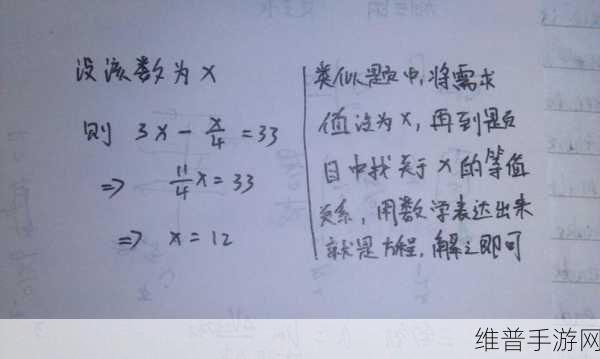 设该数为x
则 3x - x/4 = 33
=> 11/4 x = 33
=> x = 12
类似题中,将需求
值设为x,再到题
目中找关于x的等值
关系,用数学表达出来
就是方程,解之即可
维普手游网